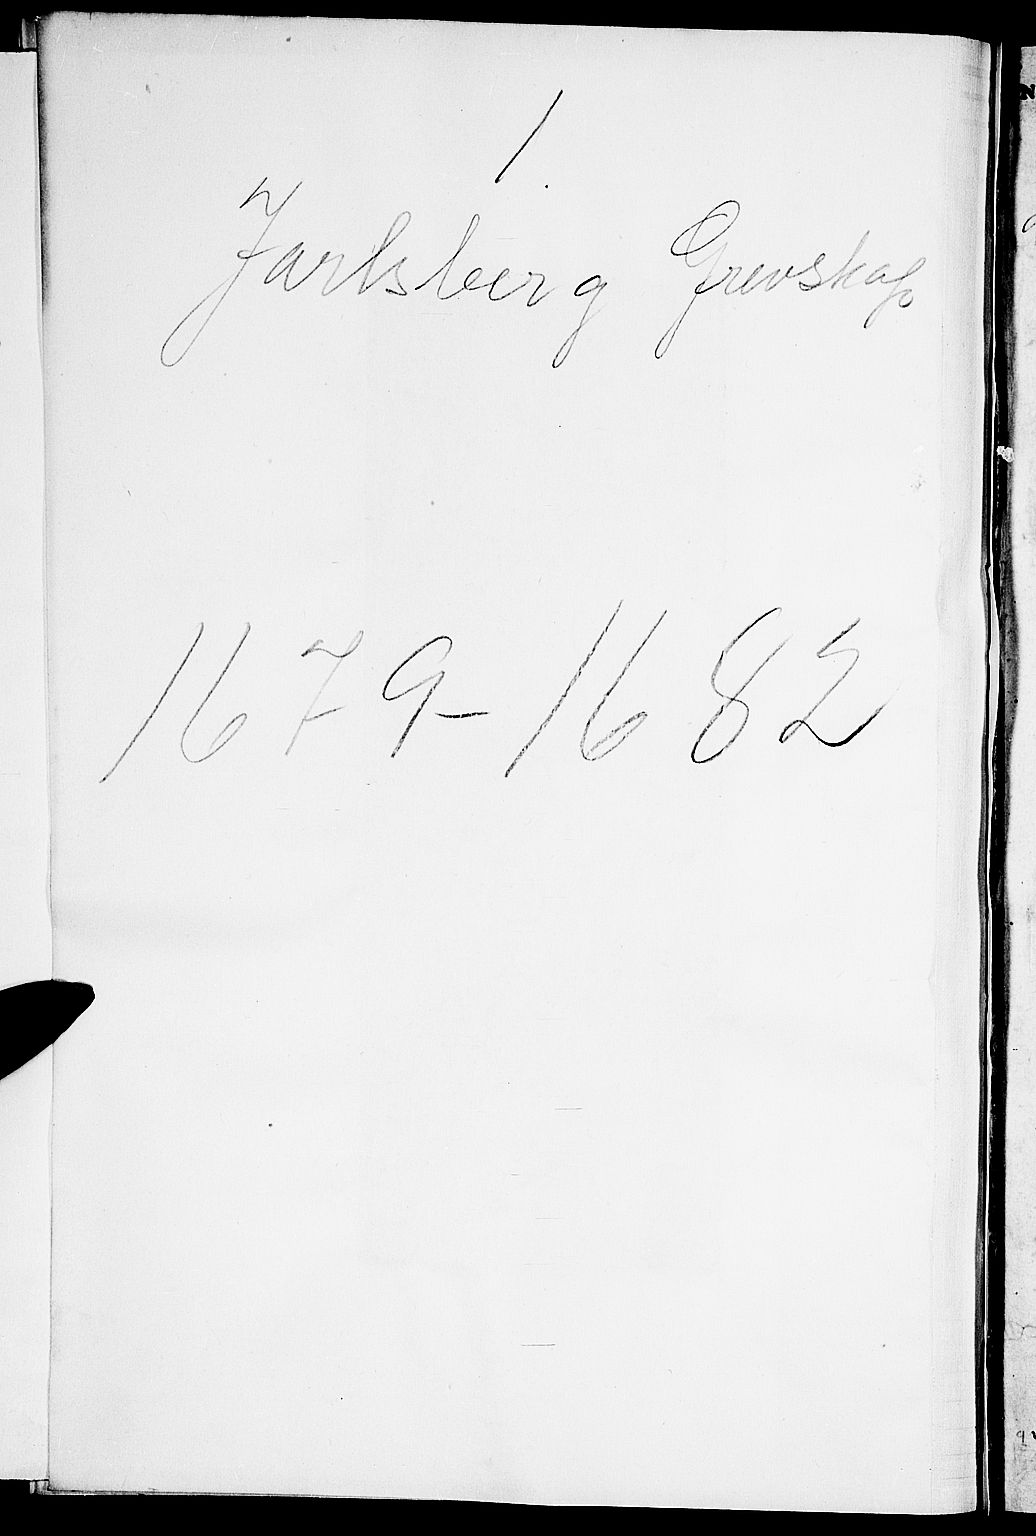 1.
Jarlsberg Grevskap
1679-1682